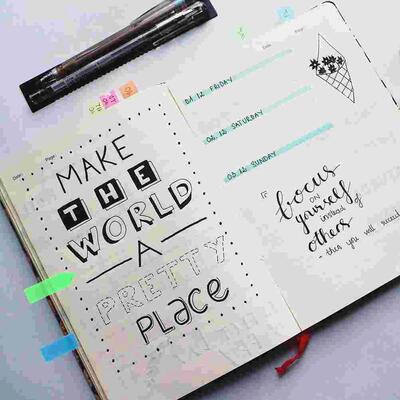 Date: Page:
MAKE
THE
WORLD
A
PRETTY
PLACE
Date Page
01.12 FRIDAY
02.12 SATURDAY
03.12 SUNDAY
focus
ON
yourself
instead of
others
- then you will succeed